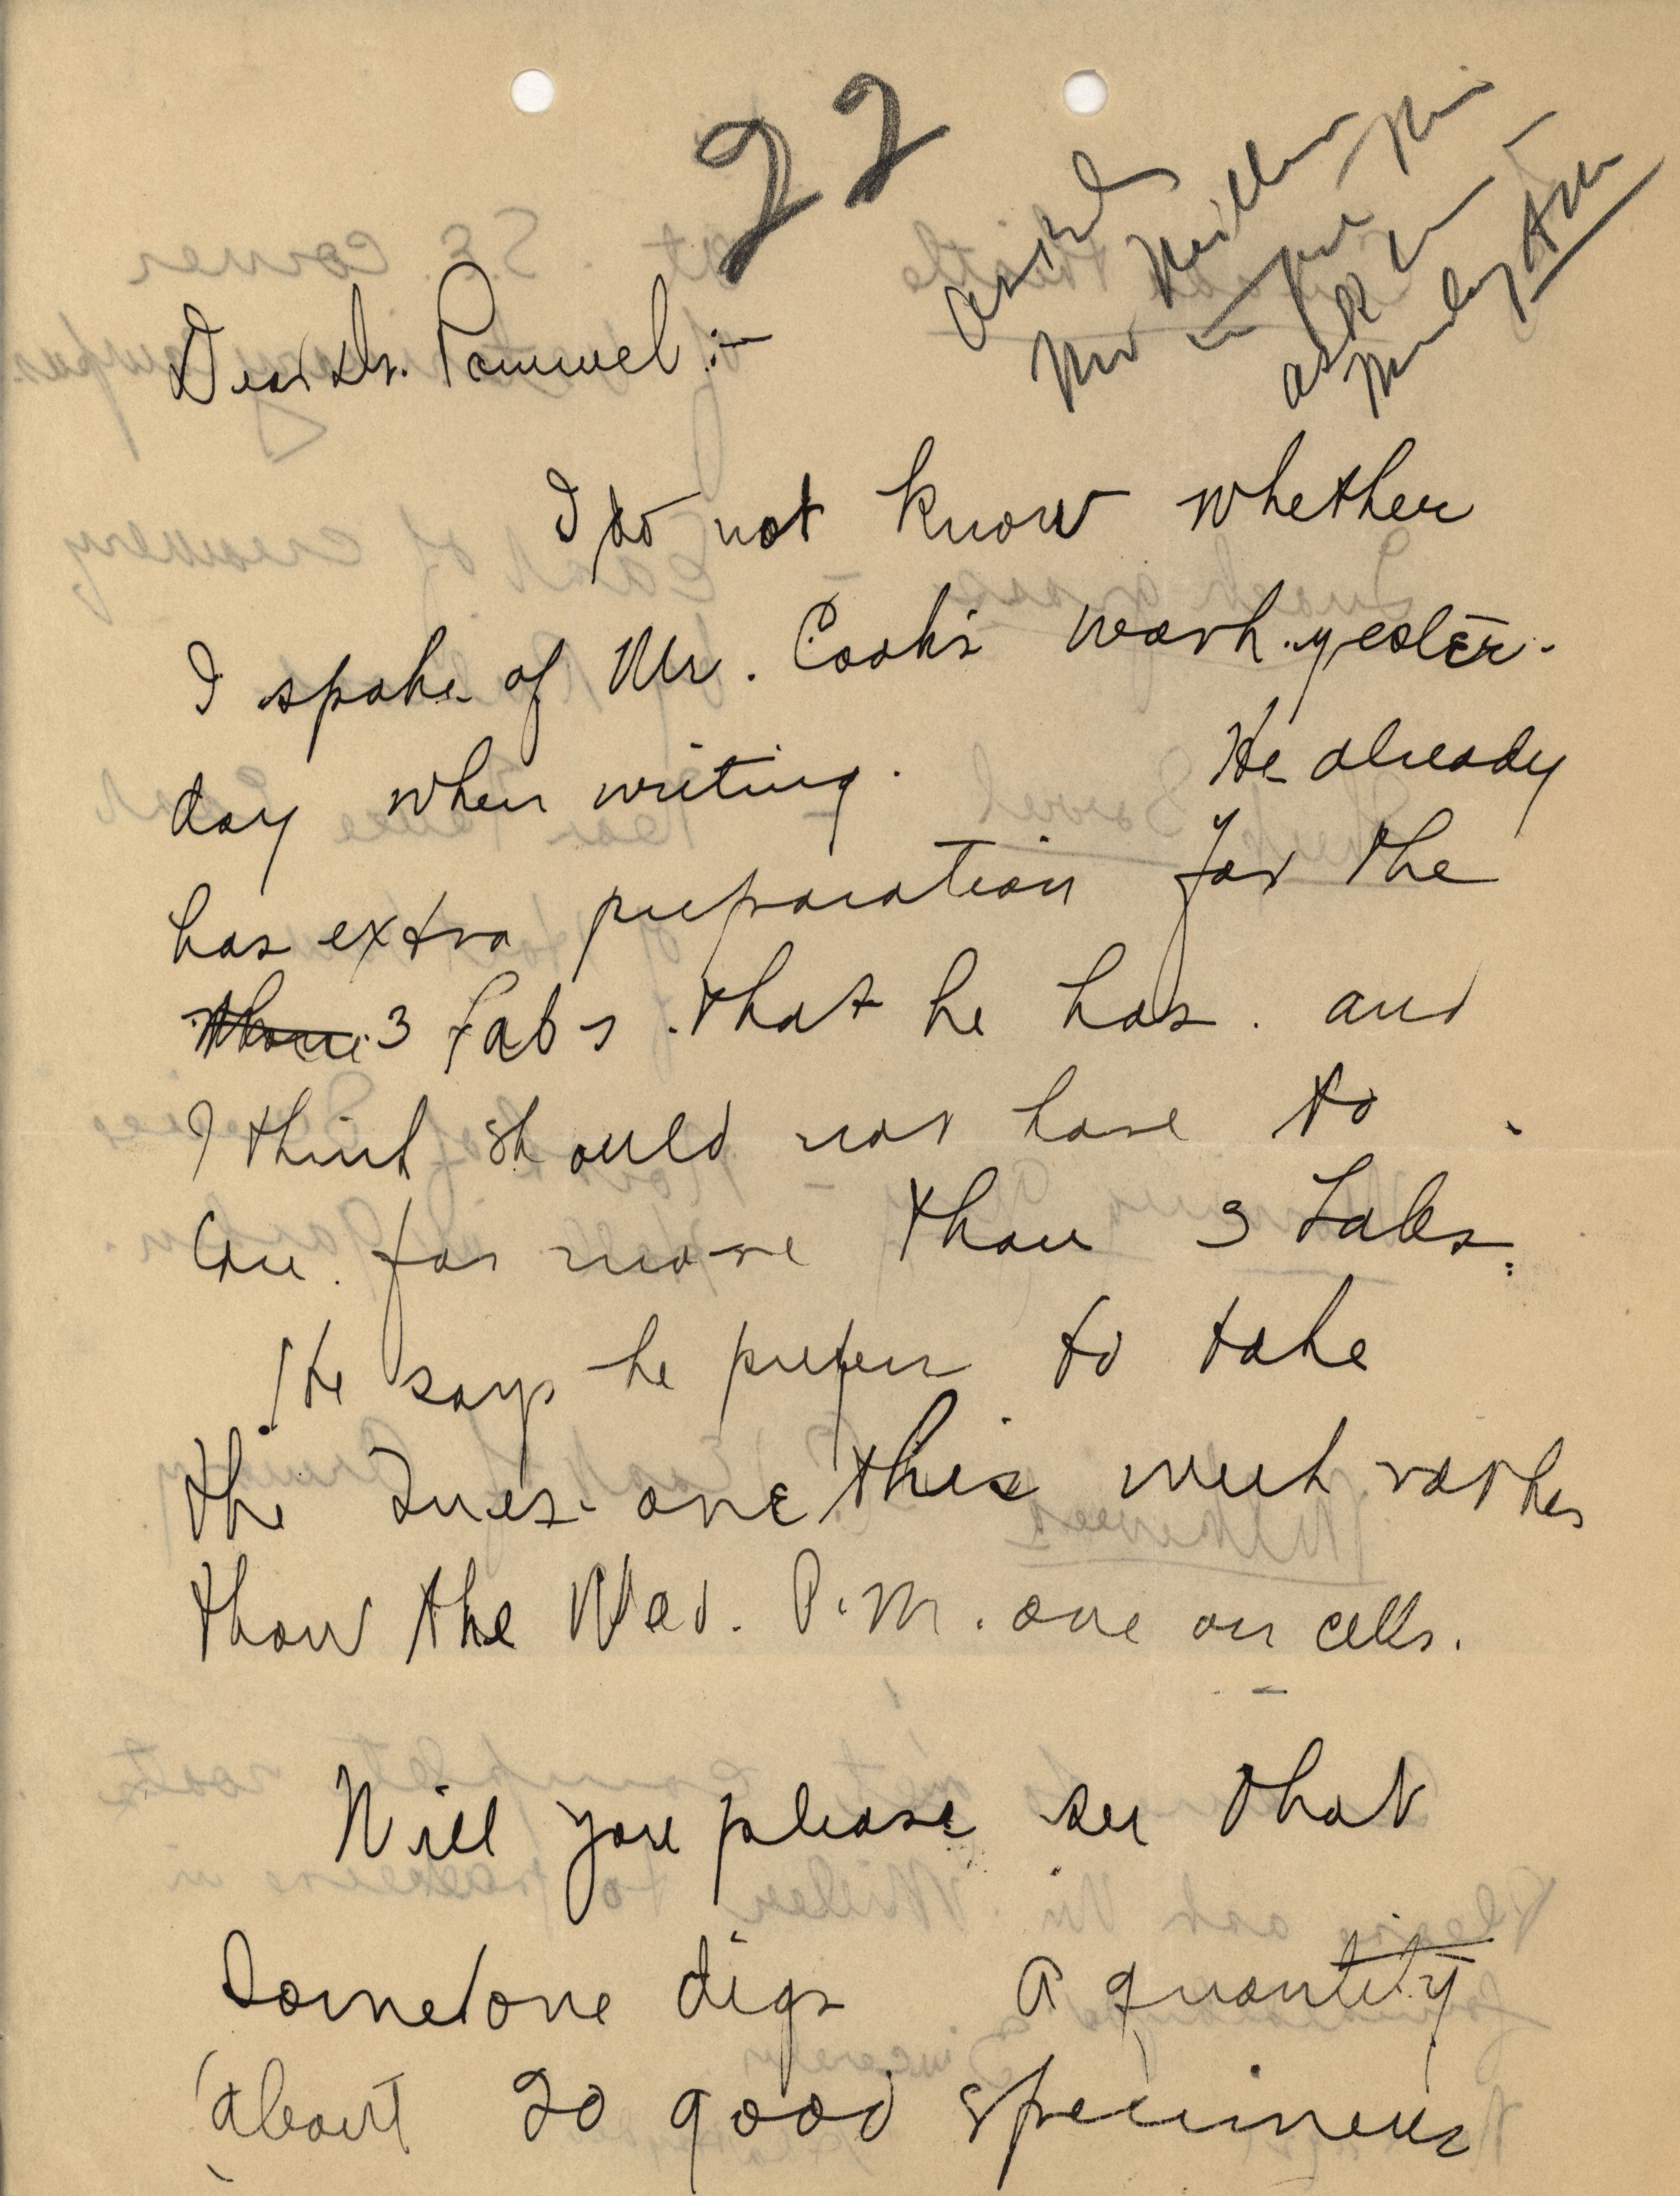 22
asked
Dear Dr. Pammel :-
I do not know whether
I spoke of Mr. Cook's work yester-
day when writing. He already
has extra preparation for the
3 Labs that he has. and
I think should not have to
care for more than 3 Labs.
He says he prefers to take
the Tues. one this week rather
than the Wed. P.M. one on cells.
Will you please see that
someone digs a quantity
(about 20 good specimens